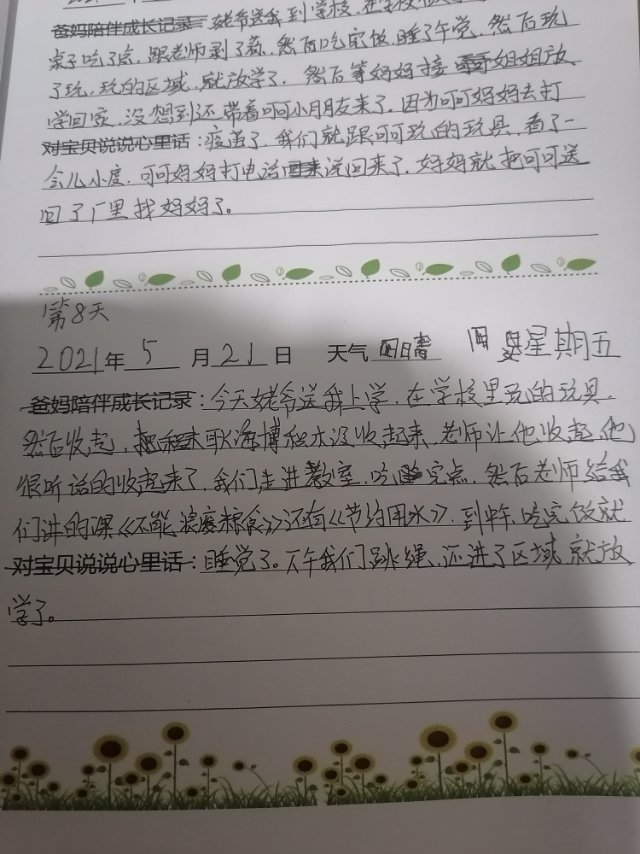 爸妈陪伴成长记录：姥爷送我到学校，在学校
桌子吃了点，跟老师剥了蒜，然后吃完饭，睡了午觉，然后玩
了玩，玩的区域，就放学了，然后等妈妈接姐姐放
学回家，没想到还带着可可小朋友来了，因为可可妈妈去打
对宝贝说说心里话：疫苗了，我们就跟可可玩的玩具，看了一
会儿小度，可可妈妈打电话说回来了，妈妈就把可可送
回了厂里找妈妈了。
第8天
2021年 5 月 21 日 天气 晴 星期五
爸妈陪伴成长记录：今天姥爷送我上学，在学校里玩的玩具，
然后收起，耿海博积木没收起来，老师让他收起，他
很听话的收起来了，我们走进教室，吃完点，然后老师给我
们讲的课《不能浪废粮食》还有《节约用水》，到中午，吃完饭就
对宝贝说说心里话：睡觉了。下午我们跳绳，还进了区域，就放
学了。